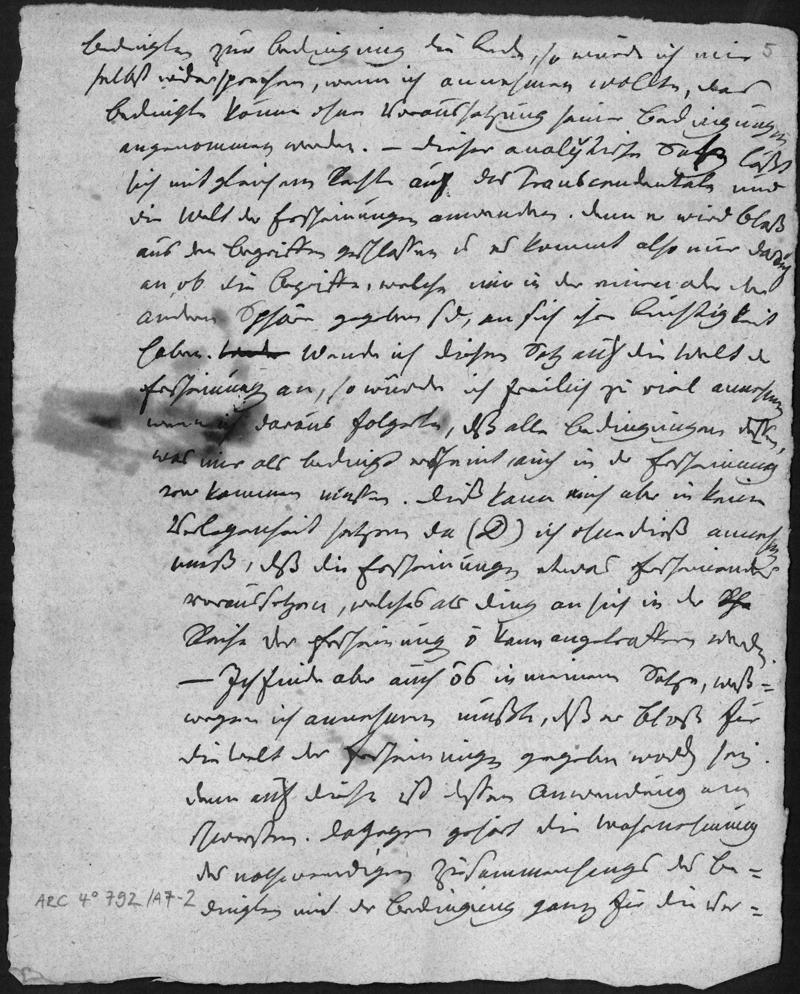 bedingten zur Bedingung die Rede, so würde ich mir 5
selbst widersprechen, wenn ich annehmen wollte, das
bedingte könne ohne Voraussetzung seiner Bedingungen
angenommen werden. — dieser analytische Satz läßt
sich mit gleichem Rechte auf das Transcendentale und
die Welt der Erscheinungen anwenden. denn er wird bloß
aus den Begriffen geschlossen u es kommt also nur darauf
an, ob die Begriffe, welche mir in der einen oder der
andern Sphäre gegeben sd, an sich ihre Richtigkeit
haben. Wende ich diesen Satz auf die Welt der
Erscheinung an, so würde ich freilich zu viel annehmen
wenn ich daraus folgerte, dß alle Bedingungen dessen,
was mir als bedingt erscheint auch in der Erscheinung
vorkommen müßten. dieß kann mich aber in keine
Verlegenheit setzen da (D) ich ohnedieß annehmen
muß, dß die Erscheinungen etwas
voraussetzen, welches als Ding an sich in der
Reihe der Erscheinung ō kann angetroffen werden.
— Ich finde aber auch ō in meinem Satze, weß=
wegen ich annehmen müßte, dß er bloß für
die Welt der Erscheinungen gegeben worden sei.
denn auf diese ist dessen Anwendung am
schwersten. dagegen gehört die Wahrnehmung
des nothwendigen Zusammenhangs des be=
dingten mit der Bedingung ganz für die Ver=
ARC 4° 792/A7-2